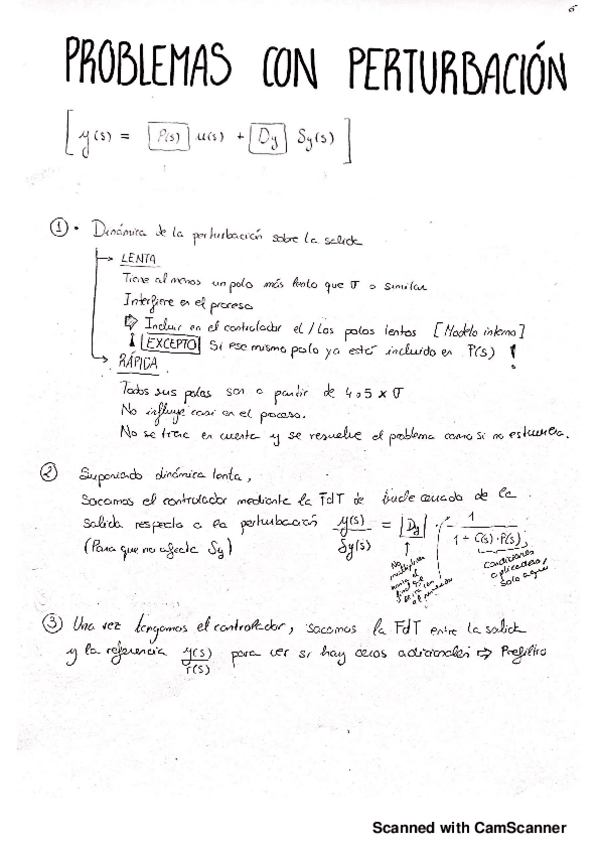 6
PROBLEMAS CON PERTURBACIÓN
[ y(s) = P(s) u(s) + Dy Sy(s) ]
① • Dinámica de la perturbación sobre la salida
→ LENTA
Tiene al menos un polo más lento que σ o similar
Interfiere en el proceso
⇨ Incluir en el controlador el / los polos lentos [Modelo interno]
EXCEPTO Si ese mismo polo ya está incluido en P(s) !
→ RÁPIDA
Todos sus polos son a partir de 4 o 5 x σ
No influye casi en el proceso.
No se tiene en cuenta y se resuelve el problema como si no estuviera.
② Suponiendo dinámica lenta,
Sacamos el controlador mediante la FdT de bucle cerrado de la
salida respecto a la perturbación y(s)/Sy(s) = |Dy| · 1/(1 + C(s)·P(s))
(Para que no afecte Sy)
No multiplicar
condiciones
aplicadas,
solo aquí
③ Una vez tengamos el controlador, sacamos la FdT entre la salida
y la referencia y(s)/r(s) para ver si hay ceros adicionales ⇨ Prefiltro
Scanned with CamScanner